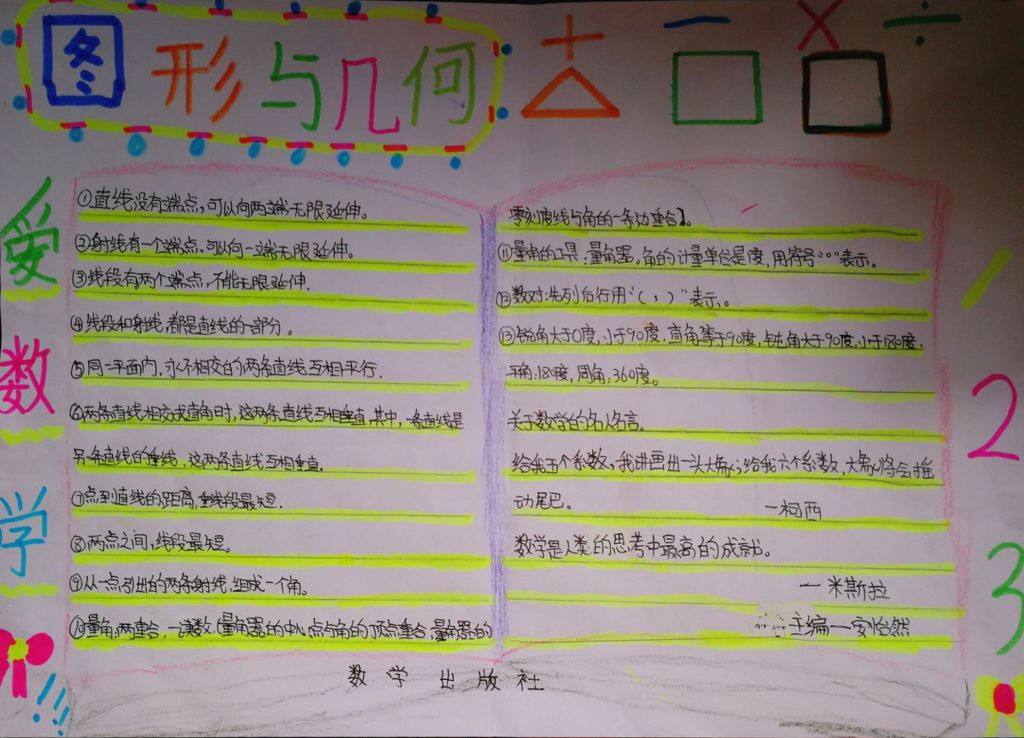 图形与几何
+ − × ÷
爱数学
!!
1 2 3
①直线没有端点,可以向两端无限延伸。
②射线有一个端点,可以向一端无限延伸。
③线段有两个端点,不能无限延伸.
④线段和射线,都是直线的一部分。
⑤同一平面内,永不相交的两条直线互相平行.
⑥两条直线相交成直角时,这两条直线互相垂直,其中,一条直线是
另一条直线的垂线、这两条直线互相垂直.
⑦点到直线的距离,垂线段最短.
⑧两点之间,线段最短。
⑨从一点引出的两条射线,组成一个角。
⑩量角:两重合,一读数(量角器的中心点与角的顶点重合,量角器的
零刻度线与角的一条边重合)。
⑪量角的工具:量角器,角的计量单位是度,用符号“°”表示。
⑫数对:先列后行用“( , )”表示。
⑬锐角大于0度,小于90度,直角等于90度,钝角大于90度,小于180度,
平角:180度,周角:360度。
关于数学的名人名言.
给我五个系数,我讲画出一头大象;给我六个系数,大象将会摇
动尾巴。 —柯西
数学是人类的思考中最高的成就。
— 米斯拉
主编—安怡然
数学出版社